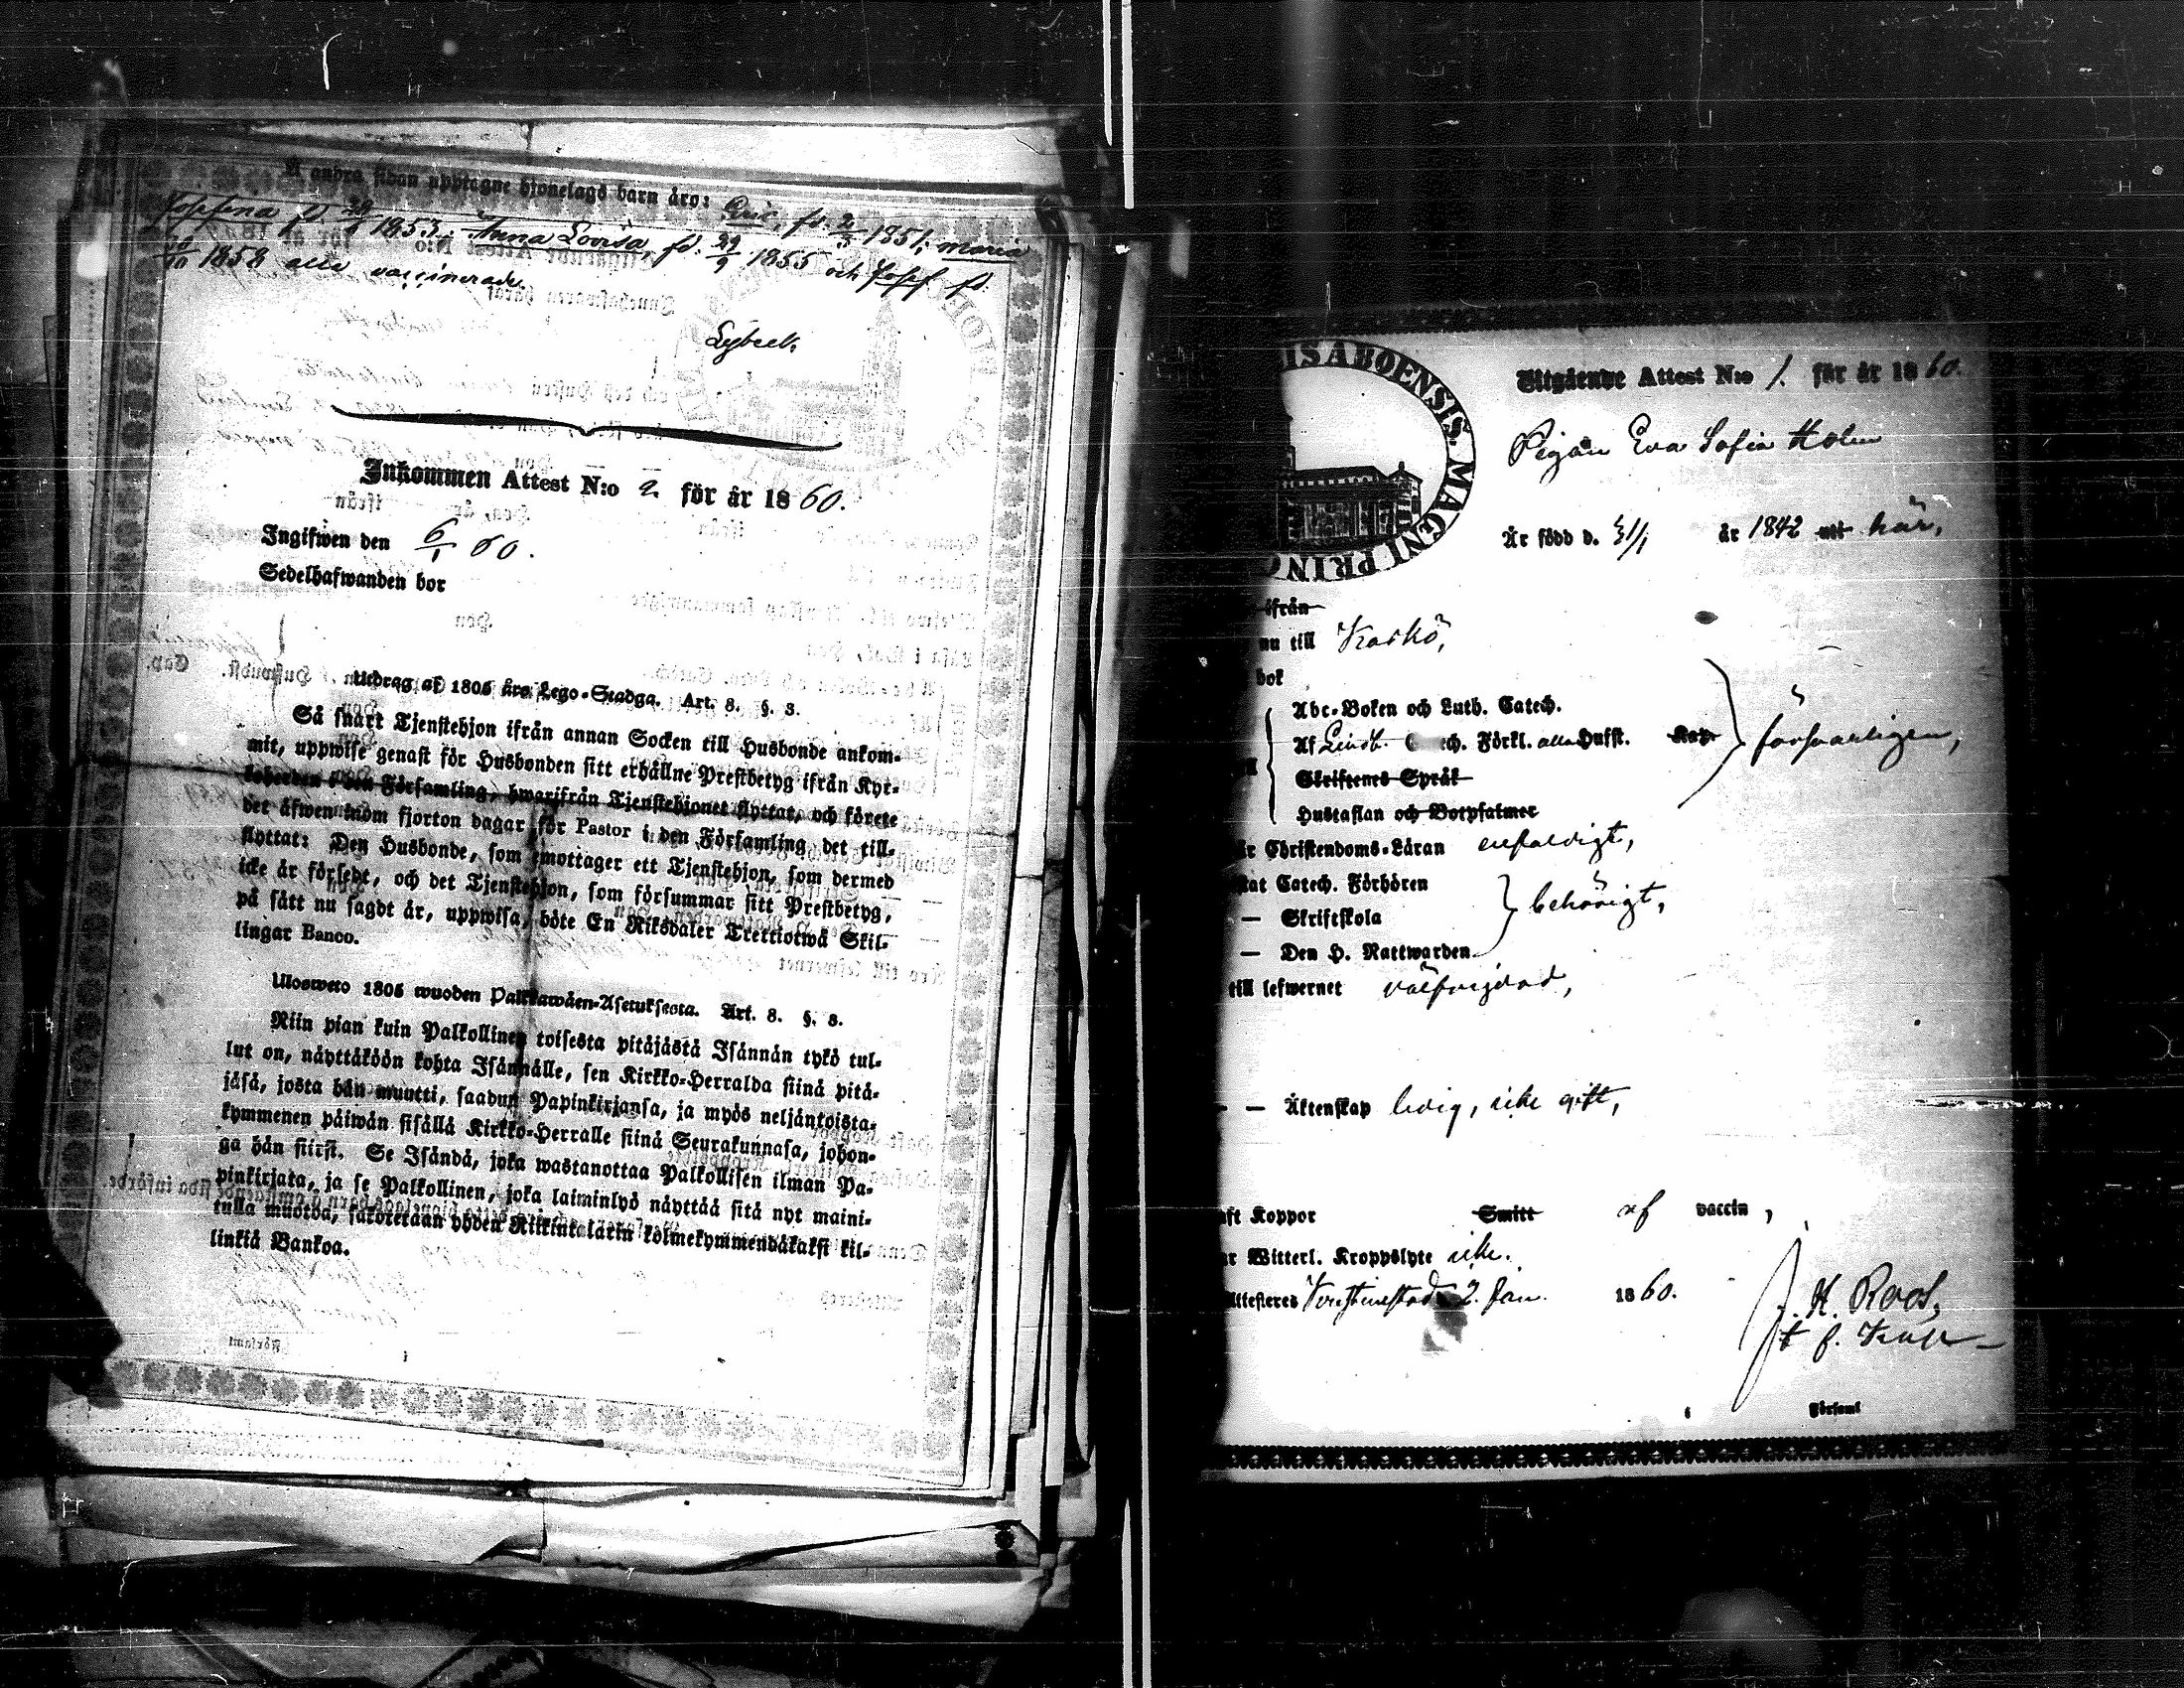 å andra sidan upptagne hjonelags barn äro: Eric, fd. 2/3 1851; Maria
Josefina fd. 1853. Anna Lovisa, fd: 29/9 1855 och Josef fd:
1858 alla vaccinerade.
Lybeck
Inkommen Attest N:o 2. för år 1860.
Ingifwen den 6/1 60.
Sedelhafwanden bor
Utdrag af 1805 års Lego-Stadga. Art. 8. §. 3.
Så snart Tjenstehjon ifrån annan Socken till Husbonde ankom-
mit, uppwise genast för Husbonden sitt erhållne Prestbetyg ifrån Kyr-
koherden i den Församling, hwarifrån Tjenstehjonet flyttat, och förete
det äfwen inom fjorton dagar för Pastor i den Församling det till-
flyttat: Den Husbonde, som emottager ett Tjenstehjon, som dermed
icke är försedt, och det Tjenstehjon, som försummar sitt Prestbetyg,
på sätt nu sagdt är, uppwisa, böte En Riksdaler Trettiotwå Skil-
lingar Banco.
Ulosweto 1805 wuoden Palkkawäen-Asetuksesta. Art. 8. §. 3.
Niin pian kuin Palkollinen toisesta pitäjästä Isännän tykö tul-
lut on, näyttäköön kohta Isännälle, sen Kirkko-Herralda siinä pitä-
jäsä, josta hän muutti, saadun Papinkirjansa, ja myös neljäntoista-
kymmenen päiwän sisällä Kirkko-Herralle siinä Seurakunnasa, johon-
ga hän siirst. Se Isändä, joka wastanottaa Palkollisen ilman Pa-
pinkirjata, ja se Palkollinen, joka laiminlyö näyttää sitä nyt maini-
tulla muotoa, sakotetaan yhden Riikintalarin kolmekymmendäkaksi kil-
linkiä Bankoa.
IS ABOENSIS. MAGNI PRINC
Utgående Attest N:o 1. för år 1860.
Pigan Eva Sofia Holm
Är född d. 31/1 år 1842 uti här,
ifrån
nu till Kaskö,
bok
Abc-Boken och Luth. Catech.
Af Lindb. Catech. Förkl. alla Husst. Kap. försvarligen,
Skriftenes Språk
Hustaflan och Botpsalmer
är Christendoms-Läran enfaldigt,
kat Catech. Förhören
— Skriftskola behörigt,
— Den H. Nattwarden
till lefwernet välfrejdad,
— — Äktenskap ledig, icke gift,
aft Koppor Smitt af vaccin,
ar Witterl. Kroppslyte icke.
Attesteres Kristinestad 2. Jan. 1860.
J. H. Roos,
t. f.
Församl